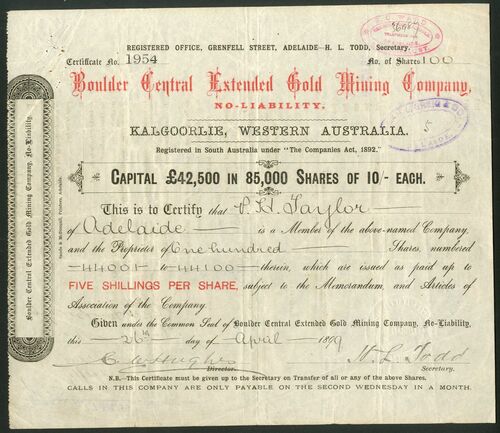 REGISTERED OFFICE, GRENFELL STREET, ADELAIDE—H. L. TODD, Secretary.
Certificate No. 1954 No. of Shares 100
Boulder Central Extended Gold Mining Company,
NO-LIABILITY.
KALGOORLIE, WESTERN AUSTRALIA.
Registered in South Australia under "The Companies Act, 1892."
CAPITAL £42,500 IN 85,000 SHARES OF 10/- EACH.
This is to Certify that P. H. Taylor
of Adelaide is a Member of the above-named Company,
and the Proprietor of One hundred Shares, numbered
44001 to 44100 therein, which are issued as paid up to
FIVE SHILLINGS PER SHARE, subject to the Memorandum, and Articles of
Association of the Company.
Given under the Common Seal of Boulder Central Extended Gold Mining Company, No-Liability,
this 26th day of April 1899
C. W. Hughes H. L. Todd
Director. Secretary.
N.B.—This Certificate must be given up to the Secretary on Transfer of all or any of the above Shares.
CALLS IN THIS COMPANY ARE ONLY PAYABLE ON THE SECOND WEDNESDAY IN A MONTH.
Boulder Central Extended Gold Mining Company, No-Liability.
5